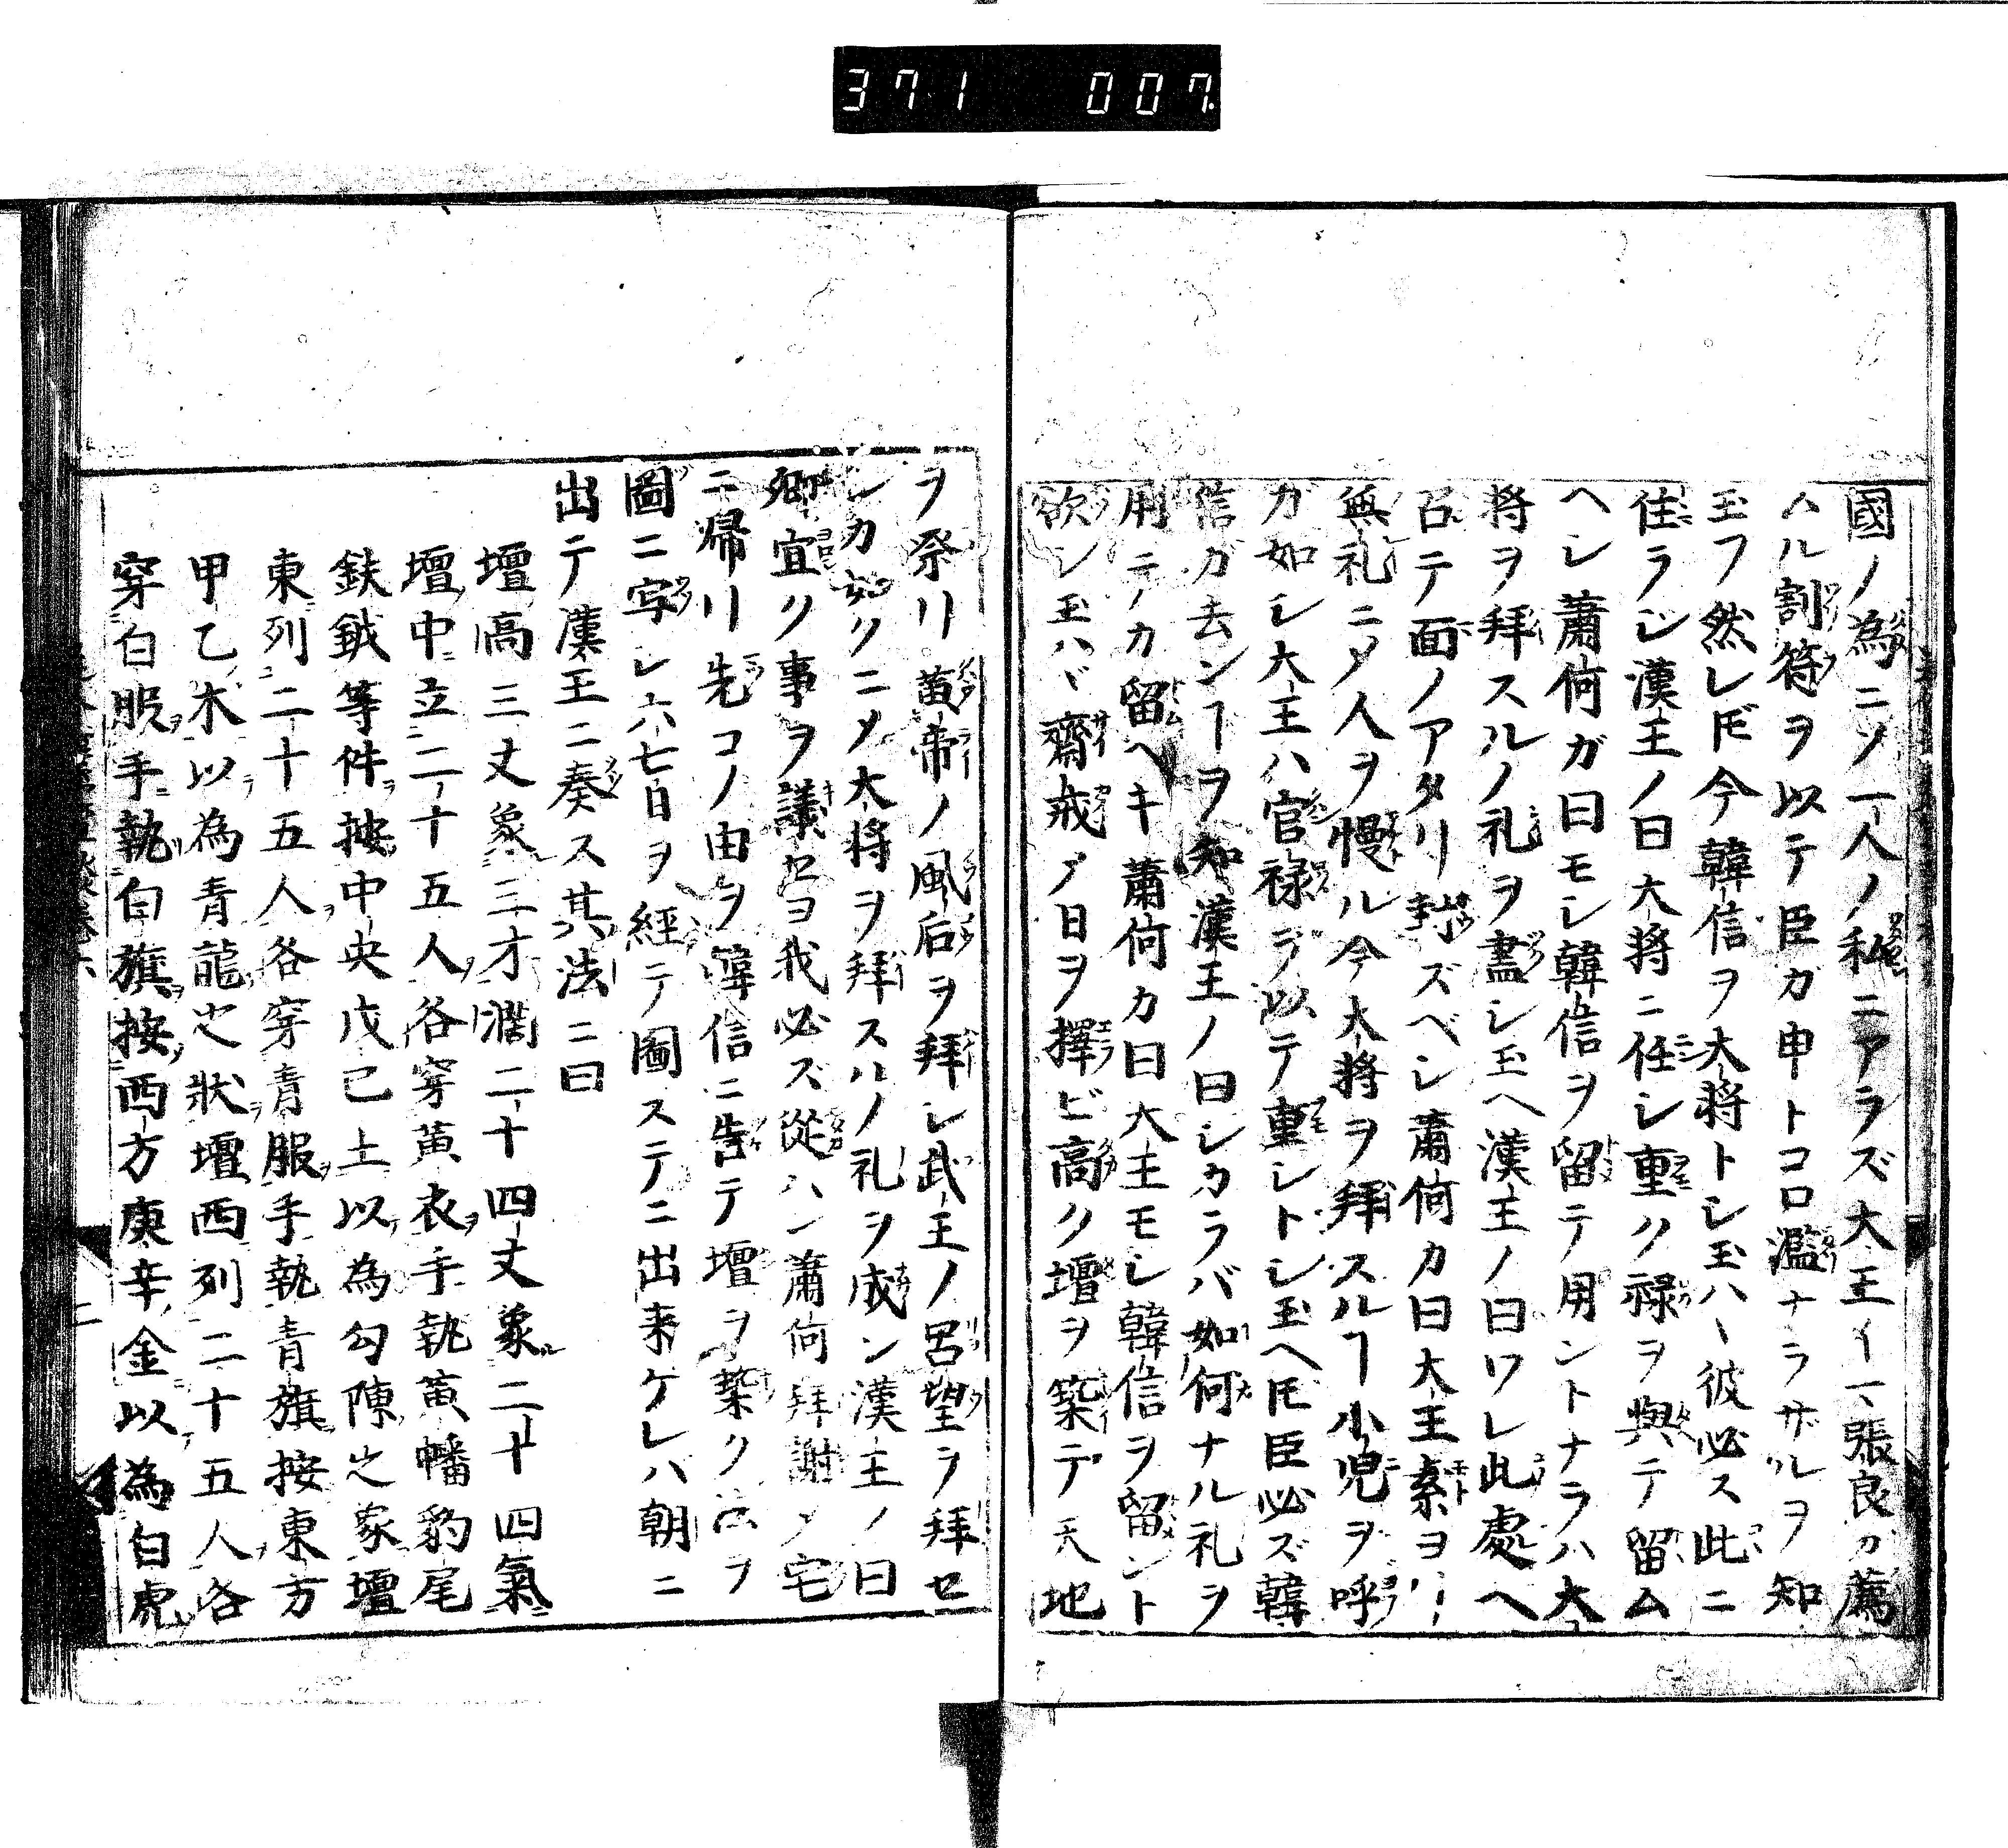 371 007
國ノ為ニソ一人ノ私ニアラズ大王イマ張良カ薦
ハル割符ヲ以テ臣カ申トコロ濫ナラザルヲ知
玉フ然レ𪜈今韓信ヲ大将トシ玉ハヽ彼必ス此ニ
住ラジ漢王ノ曰大将ニ任シ重ク禄ヲ與テ留ム
ヘシ蕭何ガ曰モシ韓信ヲ留テ用ントナラハ大
将ヲ拜スルノ礼ヲ盡シ玉ヘ漢王ノ曰ワレ此處ヘ
召テ面ノアタリ封ズベシ蕭何カ曰大王素ヨリ
無礼ニメ人ヲ慢ル今大将ヲ拜スルヿ小児ヲ呼
ガ如シ大王ハ官禄ヲ以テ重シトシ玉ヘ𪜈臣必ズ韓
信ガ去ンヿヲ知漢王ノ曰シカラバ如何ナル礼ヲ
用テカ留ヘキ蕭何カ曰大王モシ韓信ヲ留ント
欲シ玉ハヾ齋戒メ日ヲ擇ビ高ク壇ヲ築テ天地
ヲ祭リ黄帝ノ風后ヲ拜シ武王ノ呂望ヲ拜セ
シカ如クニメ大将ヲ拜スルノ礼ヲ成ン漢王ノ曰
卿宜ク事ヲ議セヨ我必ズ從ハン蕭何拜謝メ宅
ニ帰リ先コノ由ヲ韓信ニ告テ壇ヲ築ク法ヲ
圖ニ写シ六七日ヲ經テ圖ステニ出来ケレバ朝ニ
出テ漢王ニ奏ス其法ニ曰
壇高三丈象三才濶二十四丈象二十四氣
壇中立二十五人各穿黄衣手執黄幡豹尾
鈇鉞等件按中央戊己土以為勾陳之象壇
東列二十五人各穿青服手執青旗按東方
甲乙木以為青龍之狀壇西列二十五人各
穿白服手執白旗按西方庚辛金以為白虎